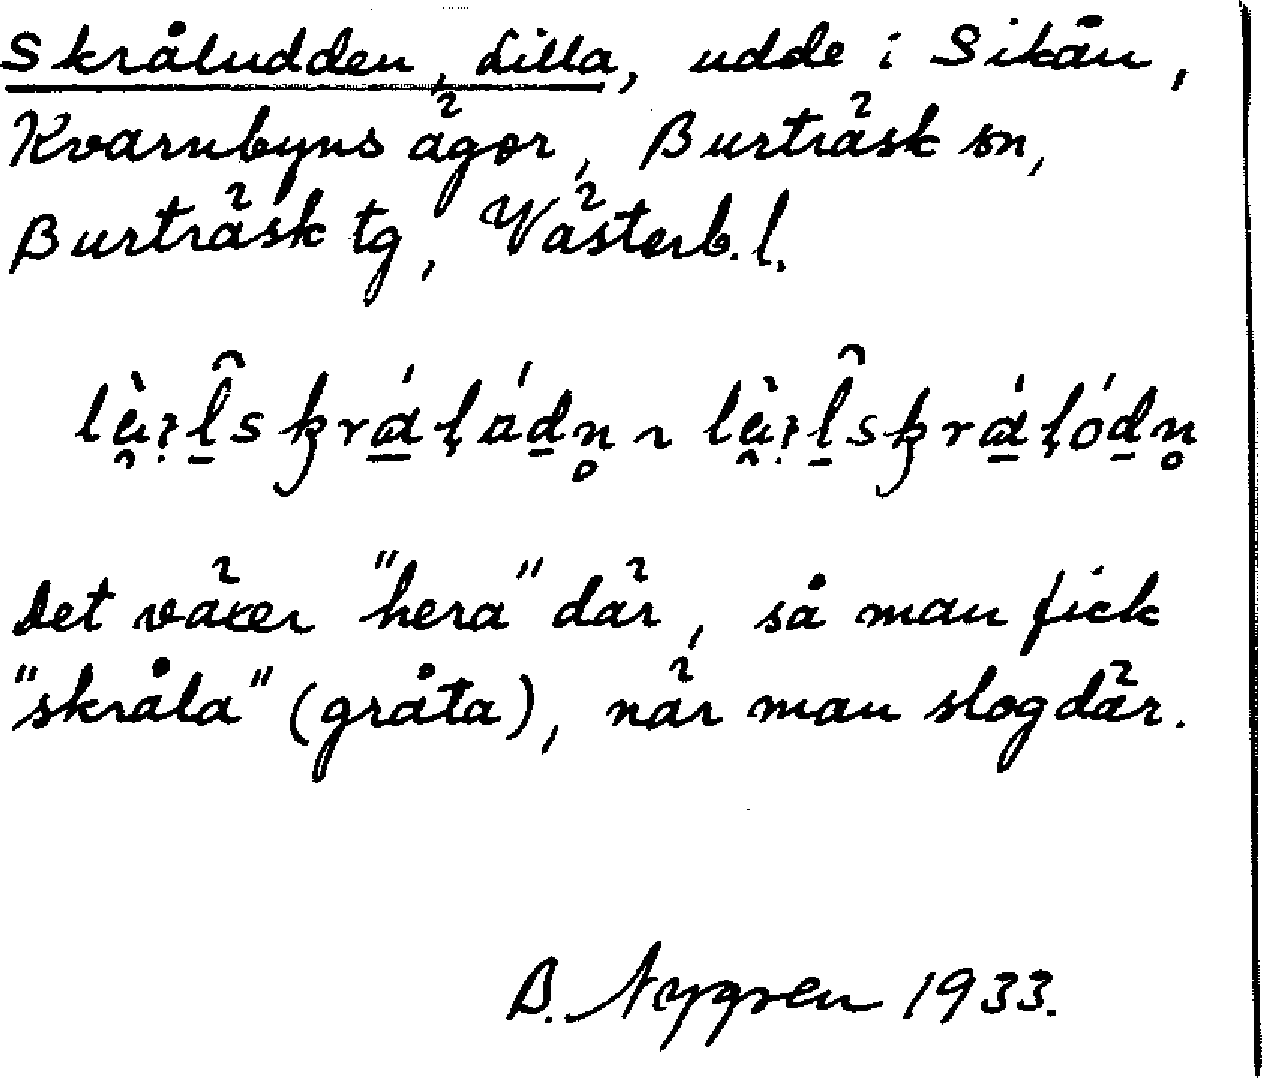 Skråludden, Lilla, udde i Sikån,
Kvarnbyns ägor, Burträsk sn,
Burträsk tg, Västerb. l.
Det växer "hera" där, så man fick
"skråla" (gråta), när man slog där.
B. Nygren 1933.